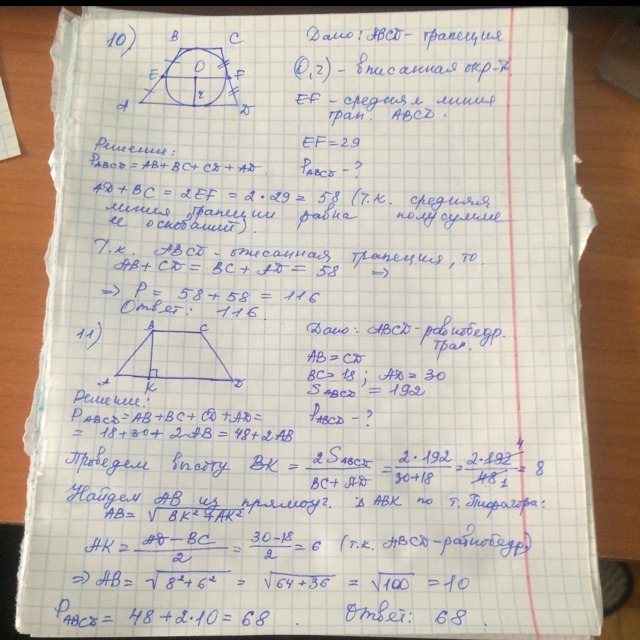 10)
B C
Дано: ABCD - трапеция
O
E F
r
A D
(O, r) - вписанная окр-ть
EF - средняя линия
трап. ABCD.
EF = 29
P_ABCD - ?
Решение:
P_ABCD = AB + BC + CD + AD
AD + BC = 2EF = 2·29 = 58 (т.к. средняя
линия трапеции равна полусумме
её оснований).
Т.к. ABCD - описанная трапеция, то
AB + CD = BC + AD = 58 ⇒
⇒ P = 58 + 58 = 116
Ответ: 116.
11)
B C
A K D
Дано: ABCD - равнобедр.
трап.
AB = CD
BC = 18; AD = 30
S_ABCD = 192
P_ABCD - ?
Решение:
P_ABCD = AB + BC + CD + AD =
= 18 + 30 + 2AB = 48 + 2AB
Проведем высоту BK = 2S_ABCD / (BC + AD) = 2·192 / (30 + 18) = 2·192 4 / 48 1 = 8
Найдем AB из прямоуг. Δ ABK по т. Пифагора:
AB = √(BK² + AK²)
AK = (AD - BC) / 2 = (30 - 18) / 2 = 6 (т.к. ABCD - равнобедр.)
⇒ AB = √(8² + 6²) = √(64 + 36) = √100 = 10
P_ABCD = 48 + 2·10 = 68. Ответ: 68.